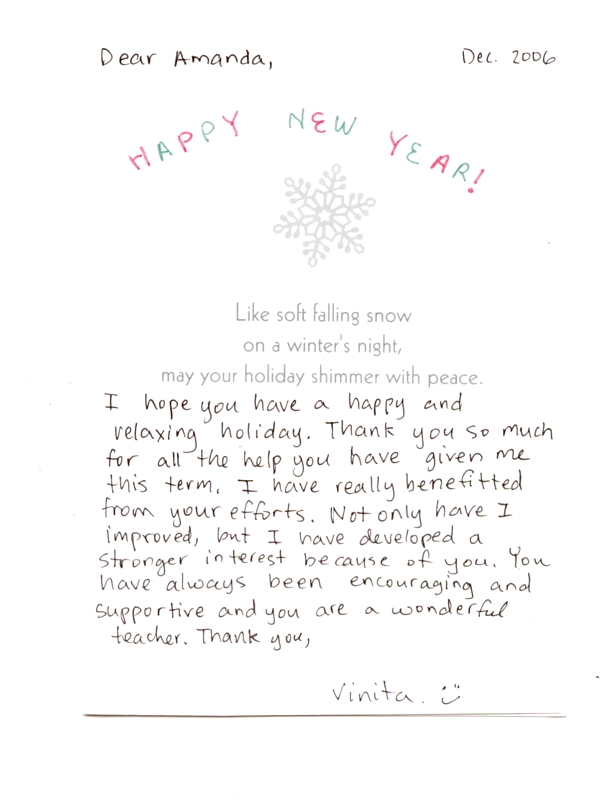 Dear Amanda, Dec. 2006
HAPPY NEW YEAR!
Like soft falling snow
on a winter's night,
may your holiday shimmer with peace.
I hope you have a happy and
relaxing holiday. Thank you so much
for all the help you have given me
this term. I have really benefitted
from your efforts. Not only have I
improved, but I have developed a
stronger interest because of you. You
have always been encouraging and
supportive and you are a wonderful
teacher. Thank you,
Vinita. :)